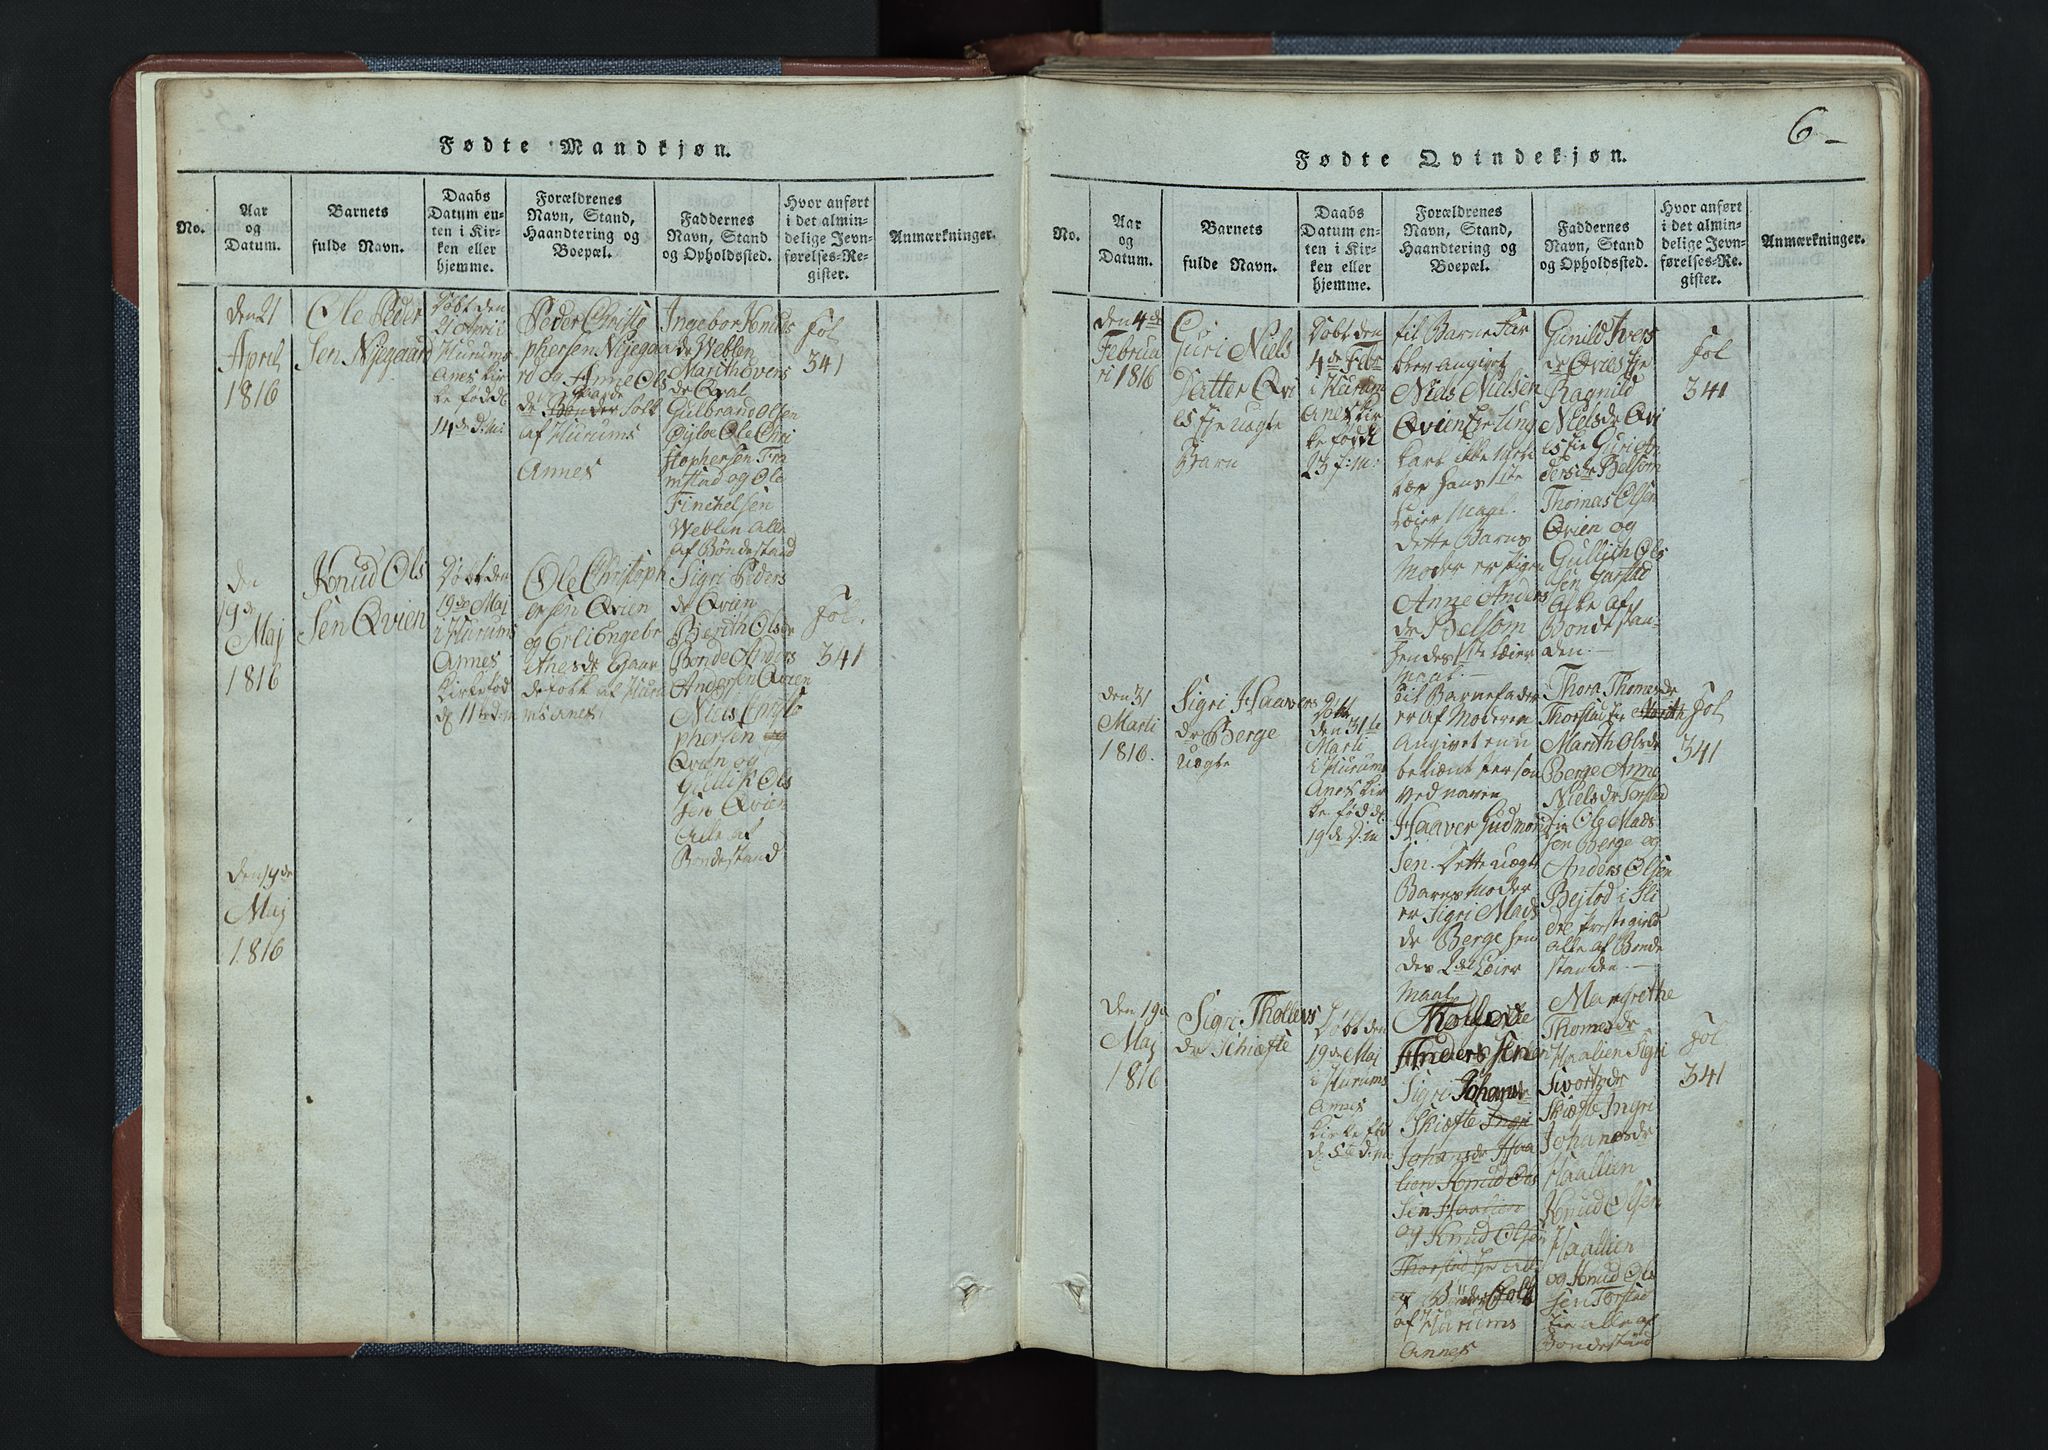 Fødte Mandkjøn.
No.
Aar
og
Datum.
Barnets
fulde Navn.
Daabs
Datum en-
ten i Kir-
ken eller
hjemme.
Forældrenes
Navn, Stand,
Haandtering og
Boepæl.
Faddernes
Navn, Stand
og Opholdssted.
Hvor anført
i det almin-
delige Jevn-
førelses-Re-
gister.
Anmærkninger.
den 21
April
1816
Ole Peder
Sen Nÿegaard
Døbt den
21 April
i Hurums
Anes Kir
ke fødd d
14de d: m:
Peder Christo
phersen Nÿegaa
rd og Anne Ols
dr Gaarde
Bønder folk
af Hurums
Annes
Ingebor Knuds
dr Weblen
Marith Ivers
dr Qval
Gulbrand Olsen
Ole Chri
stophersen Fra
mstad og Ole
Finchelsen
Weblen alle
af Bøndestand
Fol
341
den
19de
Maj
1816
Knud Ols
Sen Qvien
Døbt den
19de Maj
i Hurums
Annes
Kirke fød
d 11te d m
Ole Christoph
ersen Qvien
og Erli Engebr
ethesdr Gaar
defolk af Huru
ms Anes
Sigri Peders
dr Qvien
Berith Olsdr
Bonde Anders
Andersen Qvien
Niels Christo
phersen og
Qvien og
Gullik Ols
sen Qvien
Alle af
Bondestand
Fol.
341
den 19de
Maj
1816
6-
Fødte Qvindekjøn.
No.
Aar
og
Datum.
Barnets
fulde Navn.
Daabs
Datum en-
ten i Kir-
ken eller
hjemme.
Forældrenes
Navn, Stand,
Haandtering og
Boepæl.
Faddernes
Navn, Stand
og Opholdssted.
Hvor anført
i det almin-
delige Jevn-
førelses-Re-
gister.
Anmærkninger.
den 4de
Februa
ri 1816
Guri Niels
Datter Qvi
es Eje uægte
Barn
Døbt den
4de Febr
i Hurum
Anes Kir
ke fødd
23 f: m:
til Barne Far
blev angivet
Niels Nielsen
Qvien Eje Ung
karl ikke
hans 1te
Leier Maal.
dette Barns
Moder er Pigen
Anne Anders
dr Belsom
hendes 1te Leier
maal
Gunild Ivers
dr Qvies Eje
Ragnild
Nielsdr Qvi
es Eie Guri An
dersdr Belsom
Thomas Olsen
Qvien og
Gullich Ols
Sen Garstad
Alle af
Bondestan-
den.
Fol
341
den 31
Marti
1816.
Sigri Haavers
dr Berge
uægte
Døbt
den 31te
Marti
i Hurums
Anes Kir
ke fød d
19de d: m
til Barnefader
er af Moderen
Angivet en u
bekiænt Person
ved navn
Haaver Gudmon
Sen. Dette uægte
Barns Moder
er Sigri Mads
dr Berge hen
des 2det Leier
Maal
Thora Thomesdr
Thorstad Eje Marith
Marith Olsdr
Berge Anne
Nielsdr Torstad
Eie Ole Mads
sen Berge og
Anders Olsen
Bejtod i Sli
dre Prestegield
alle af Bonde
standen.
Fol
341
den 19de
Maj
1816
Sigri Tholleus
dr Schiæfte
Døbt den
19de Maj
i Hurums
Annes
Kirke fød
d 5te d: m:
Anderssen
Sigri Johansdr
Skiæfte Ingri
Johansdr Haa
lien Knud Ols
Sen Haalien
og Knud Olsen
Thorstad Eje Alle
af Bønder Folk
af Hurums
Annes
Margrethe
Thomesdr
Haalien Sigri
Sivortsdr
Skiæfte Ingri
Johanesdr
Haallien
Knud Olsen
Haallien
og Knud Ols
sen Torstad
Eie alle af
Bondestand
Fol
341